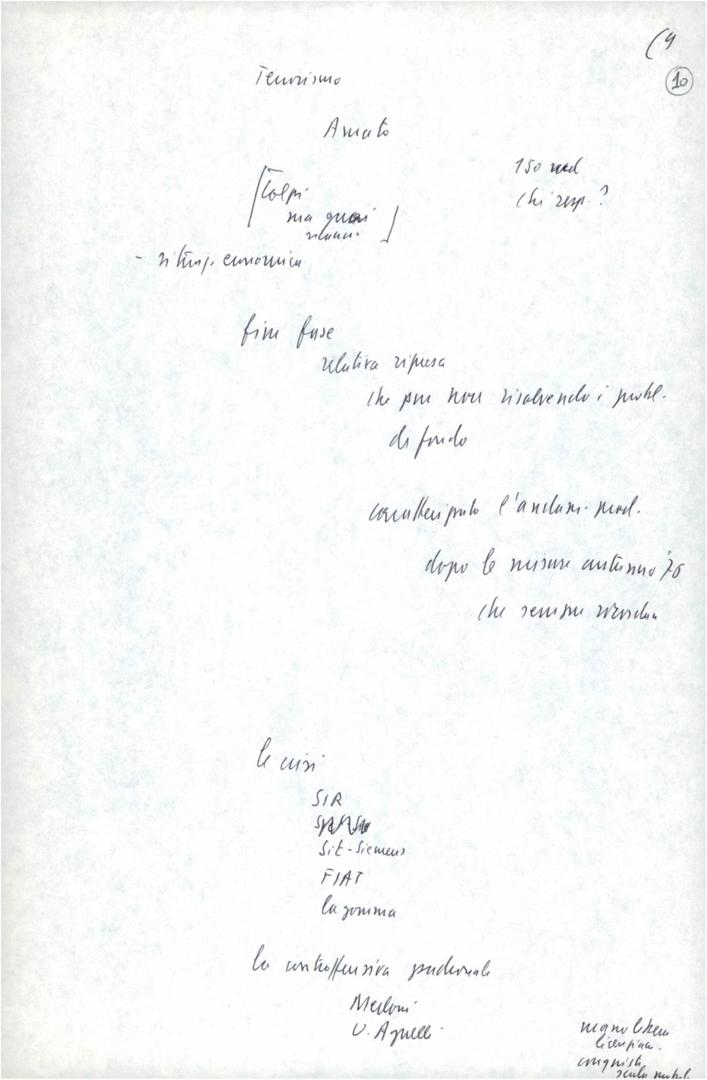 (4
10
Terrorismo
Amato
150 med
[Colpi
chi resp.?
ma quai
]
- situaz. economica
fine fase
relativa ripresa
che pur non risolvendo i probl.
di fondo
caratterizzato l'andam. prod.
dopo le misure autunno '76
che sempre ricordau
le crisi
SIR
Sit-Siemens
FIAT
la gomma
la controffensiva padronale
Merloni
U. Agnelli
meno libera
licenziam.
conquiste
scala mobil.